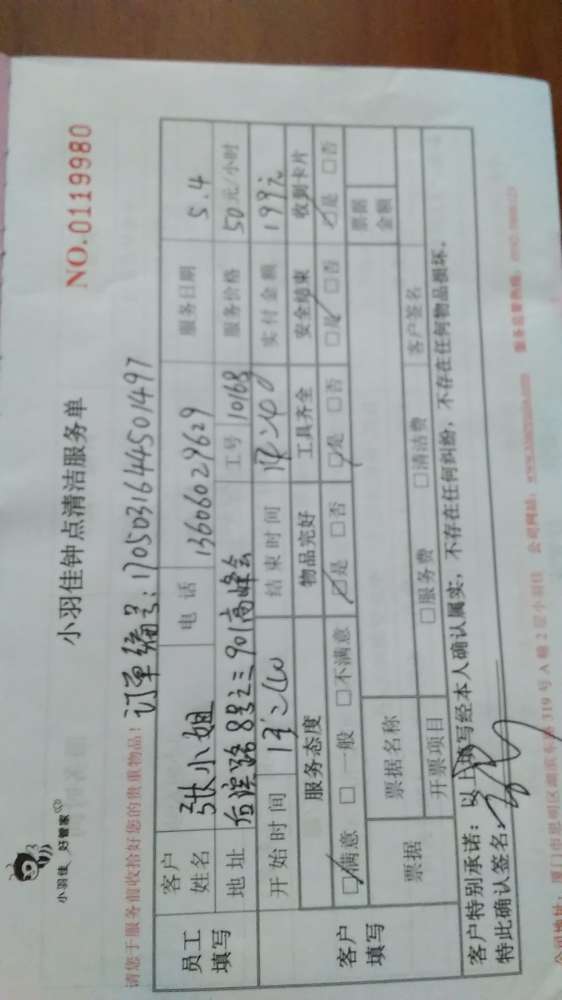 小羽佳 好管家
小羽佳钟点清洁服务单
NO.0119980
请您于服务前收拾好您的贵重物品！
订单编号：1705031644501497
员工填写
客户姓名 张小姐 电话 13606029629 服务日期 5.4
地址 后滨路8号之三901高峰会 工号 10168 服务价格 50元/小时
客户填写
开始时间 13:00 结束时间 17:00 实付金额 199元
服务态度 物品完好 工具齐全 安全结束 收到卡片
☑满意 □一般 □不满意 ☑是 □否 ☑是 □否 ☑是 □否 ☑是 □否
票据 票据名称 票据金额
开票项目 □服务费 □清洁费 客户签名
客户特别承诺：以上填写经本人确认属实，不存在任何纠纷，不存在任何物品损坏。
特此确认签名：
公司地址：厦门市思明区湖滨东路319号A幢2层小羽佳 公司网站：